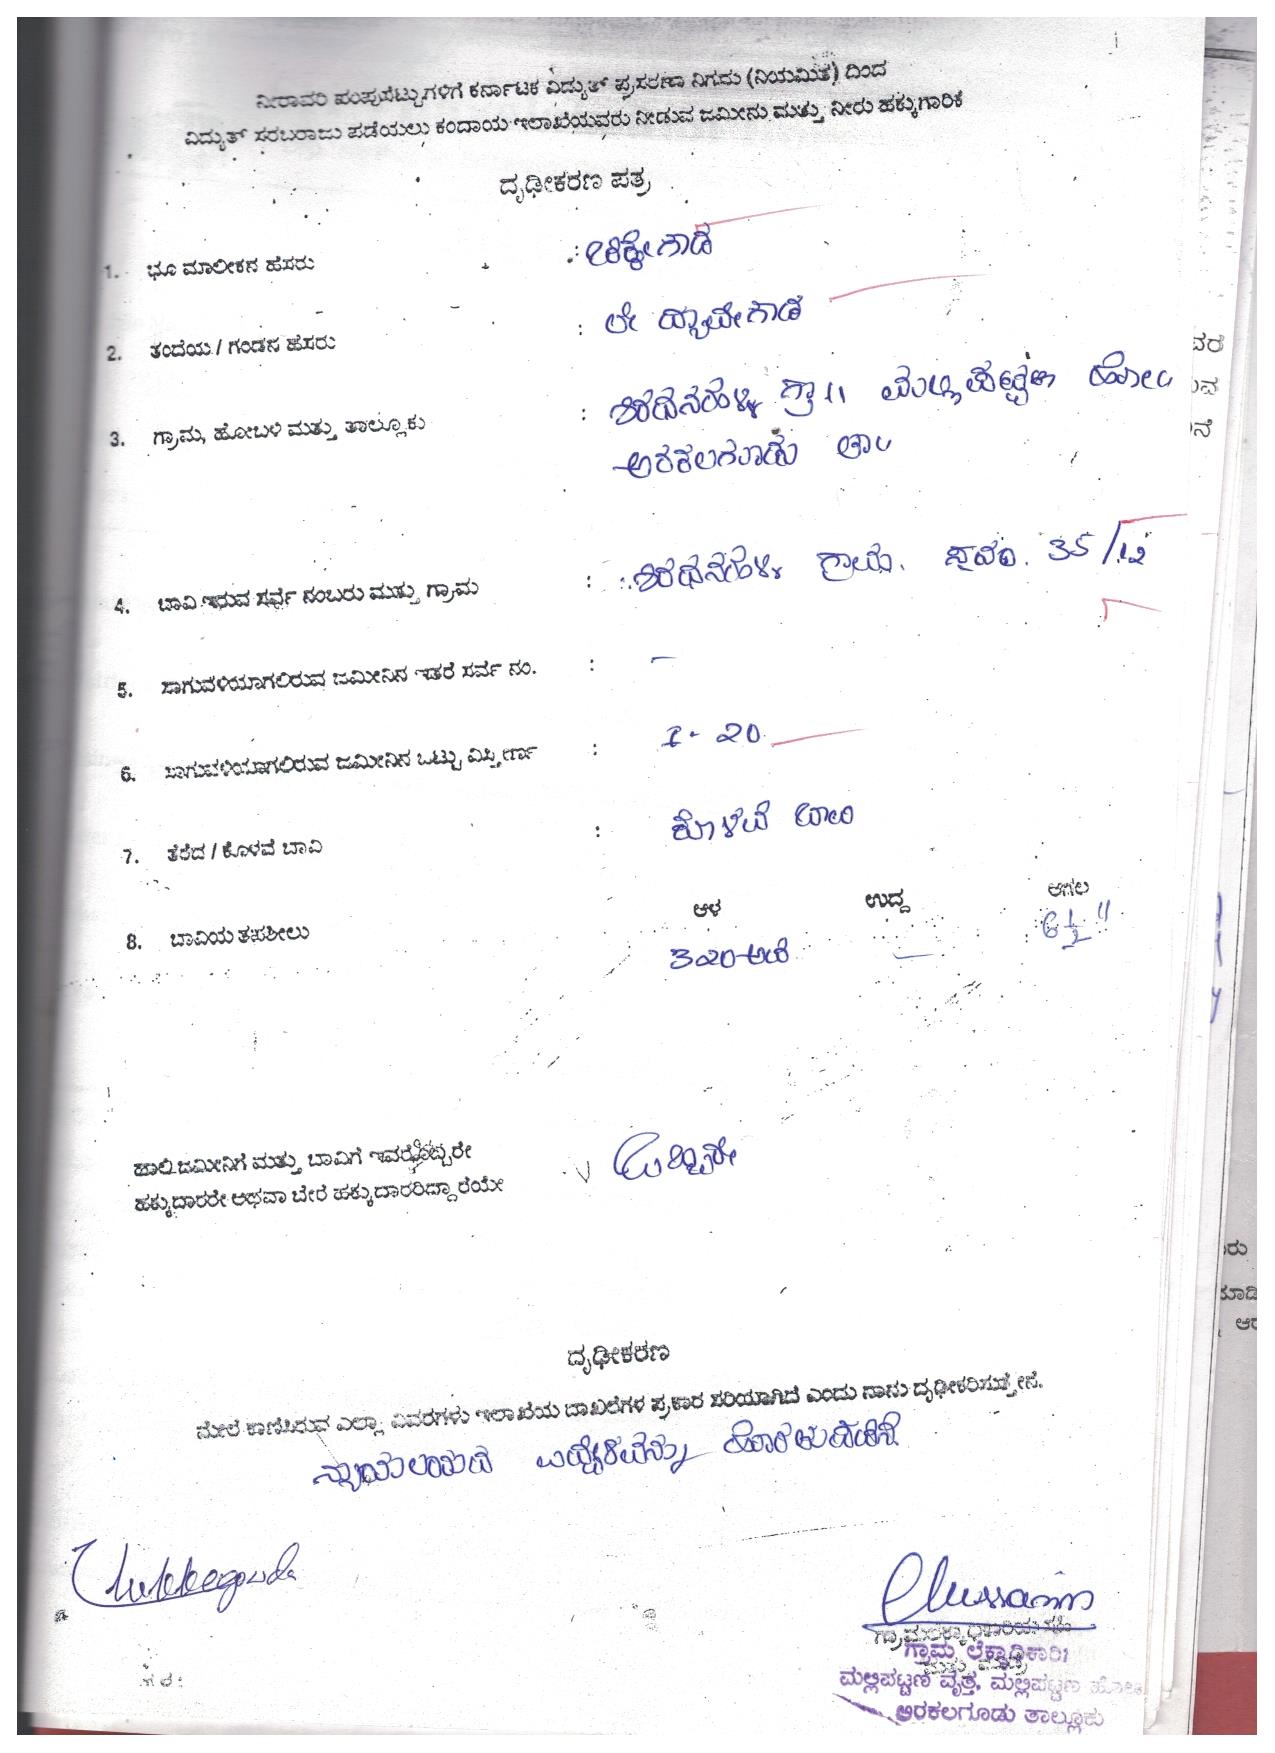 ನೀರಾವರಿ ಪಂಪುಸೆಟ್ಟುಗಳಿಗೆ ಕರ್ನಾಟಕ ವಿದ್ಯುತ್ ಪ್ರಸರಣಾ ನಿಗಮ (ನಿಯಮಿತ) ದಿಂದ
ವಿದ್ಯುತ್ ಸರಬರಾಜು ಪಡೆಯಲು ಕಂದಾಯ ಇಲಾಖೆಯವರು ನೀಡುವ ಜಮೀನು ಮತ್ತು ನೀರು ಹಕ್ಕುಗಾರಿಕೆ
ದೃಢೀಕರಣ ಪತ್ರ
1. ಭೂ ಮಾಲೀಕನ ಹೆಸರು : ಚಿಕ್ಕೇಗೌಡ
2. ತಂದೆಯ / ಗಂಡನ ಹೆಸರು : ಲೇ
3. ಗ್ರಾಮ, ಹೋಬಳಿ ಮತ್ತು ತಾಲ್ಲೂಕು : ಗ್ರಾ|| ಮಲ್ಲಿಪಟ್ಟಣ ಹೋ||
ಅರಕಲಗೂಡು ತಾ||
4. ಬಾವಿ ಇರುವ ಸರ್ವೆ ನಂಬರು ಮತ್ತು ಗ್ರಾಮ : ಗ್ರಾಮ. ಸ.ನಂ. 35/12
5. ಸಾಗುವಳಿಯಾಗಲಿರುವ ಜಮೀನಿನ ಇತರೆ ಸರ್ವೆ ನಂ. : —
6. ಸಾಗುವಳಿಯಾಗಲಿರುವ ಜಮೀನಿನ ಒಟ್ಟು ವಿಸ್ತೀರ್ಣ : 1-20
7. ತೆರೆದ / ಕೊಳವೆ ಬಾವಿ : ಕೊಳವೆ ಬಾವಿ
ಆಳ ಉದ್ದ ಅಗಲ
8. ಬಾವಿಯ ತಪಶೀಲು 320 ಅಡಿ — 6 1/2 "
ಹಾಲಿ ಜಮೀನಿಗೆ ಮತ್ತು ಬಾವಿಗೆ ಇವರೊಬ್ಬರೇ
ಹಕ್ಕುದಾರರೇ ಅಥವಾ ಬೇರೆ ಹಕ್ಕುದಾರರಿದ್ದಾರೆಯೇ
ದೃಢೀಕರಣ
ಮೇಲೆ ಕಾಣಿಸಿರುವ ಎಲ್ಲಾ ವಿವರಗಳು ಇಲಾಖೆಯ ದಾಖಲೆಗಳ ಪ್ರಕಾರ ಸರಿಯಾಗಿದೆ ಎಂದು ನಾನು ದೃಢೀಕರಿಸುತ್ತೇನೆ.
ನ್ಯಾಯಾಲಯದ ಹೊರತುಪಡಿಸಿ
Chikkegowda
ಗ್ರಾಮ ಲೆಕ್ಕಾಧಿಕಾರಿ
ಮಲ್ಲಿಪಟ್ಟಣ ವೃತ್ತ, ಮಲ್ಲಿಪಟ್ಟಣ ಹೋ||
ಅರಕಲಗೂಡು ತಾಲ್ಲೂಕು